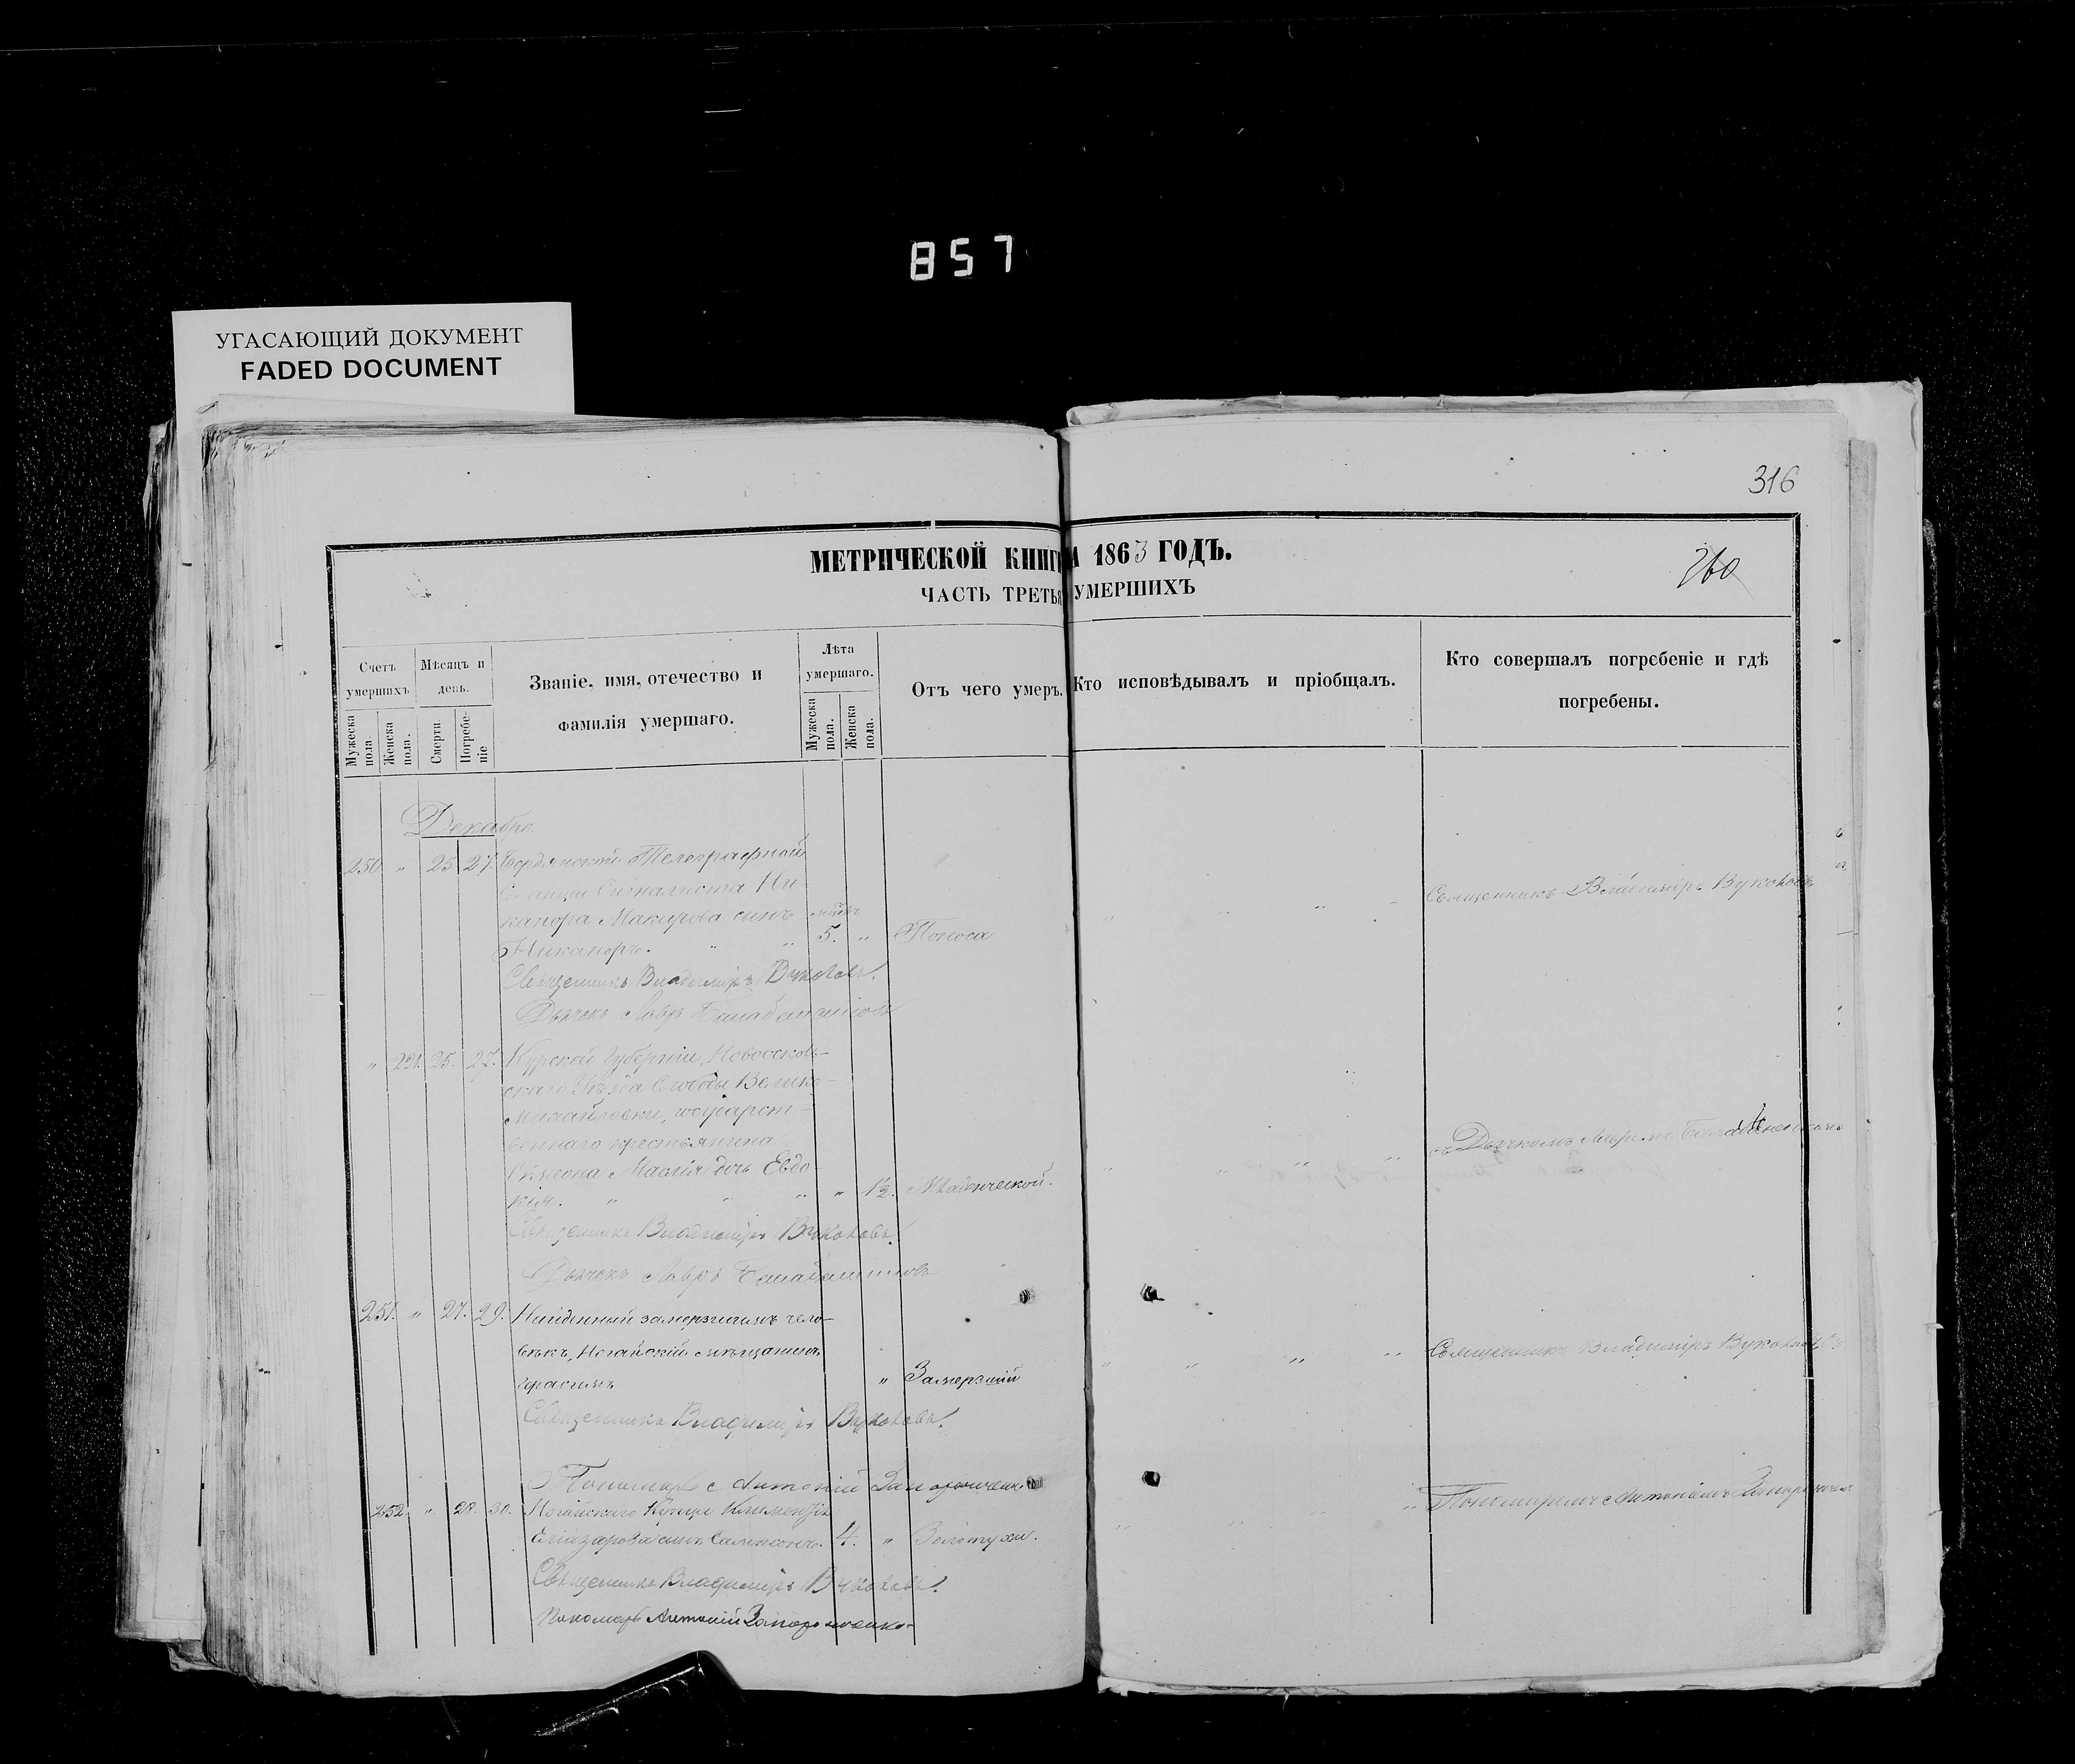 857
УГАСАЮЩИЙ ДОКУМЕНТ
FADED DOCUMENT
316
МЕТРИЧЕСКОЙ КНИГИ 1863 ГОДЪ.
260
ЧАСТЬ ТРЕТЬЯ УМЕРШИХЪ
Счетъ умершихъ
Мѣсяцъ и день.
Званіе, имя, отечество и фамилія умершаго.
Лѣта умершаго.
Отъ чего умеръ.
Кто исповѣдывалъ и пріобщалъ.
Кто совершалъ погребеніе и гдѣ погребены.
Мужеска пола.
Женска пола.
Смерти
Погребеніе
Мужеска пола.
Женска пола.
Декабрь
250 " 25 27. Бердянской Телеграфной
Станціи Сигналиста Ни-
канора Макарова сынъ
Никаноръ. " " 5. " Поноса
Священникъ Владиміръ Вуколовъ
Священникъ Владиміръ Вуколовъ.
Дьячекъ Лавръ
" 221. 25. 27. Курской Губерніи, Новооскол-
скаго Уѣзда Слободы Велико-
михайловки, государст-
веннаго крестьянина
дочь Евдо-
кія. " " " " 1½. Младенческой.
съ Дьячкомъ
Священникъ Владиміръ Вуколовъ.
Дьячекъ Лавръ
251. " 27. 29. Найденный замерзшимъ чело-
вѣкъ, Ногайскій мѣщанинъ
Герасимъ " Замерзшій
Священникъ Владиміръ Вуколовъ
Священникъ Владиміръ Вуколовъ.
Пономарь Антоній Запорожченко
252. " 28. 30. Ногайскаго Купца Климентія
Еліазарова сынъ Сампсонъ. 4. " Золотухи.
Пономаремъ Антоніемъ
Священникъ Владиміръ Вуколовъ.
Пономарь Антоній Запорожченко